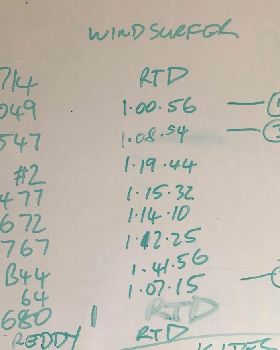 WINDSURFER
714 RTD
049 1.00.56
547 1.08.54
#2 1.19.44
477 1.15.32
672 1.14.10
767 1.12.25
B44 1.41.56
64 1.07.15
680 RTD
REDDY RTD